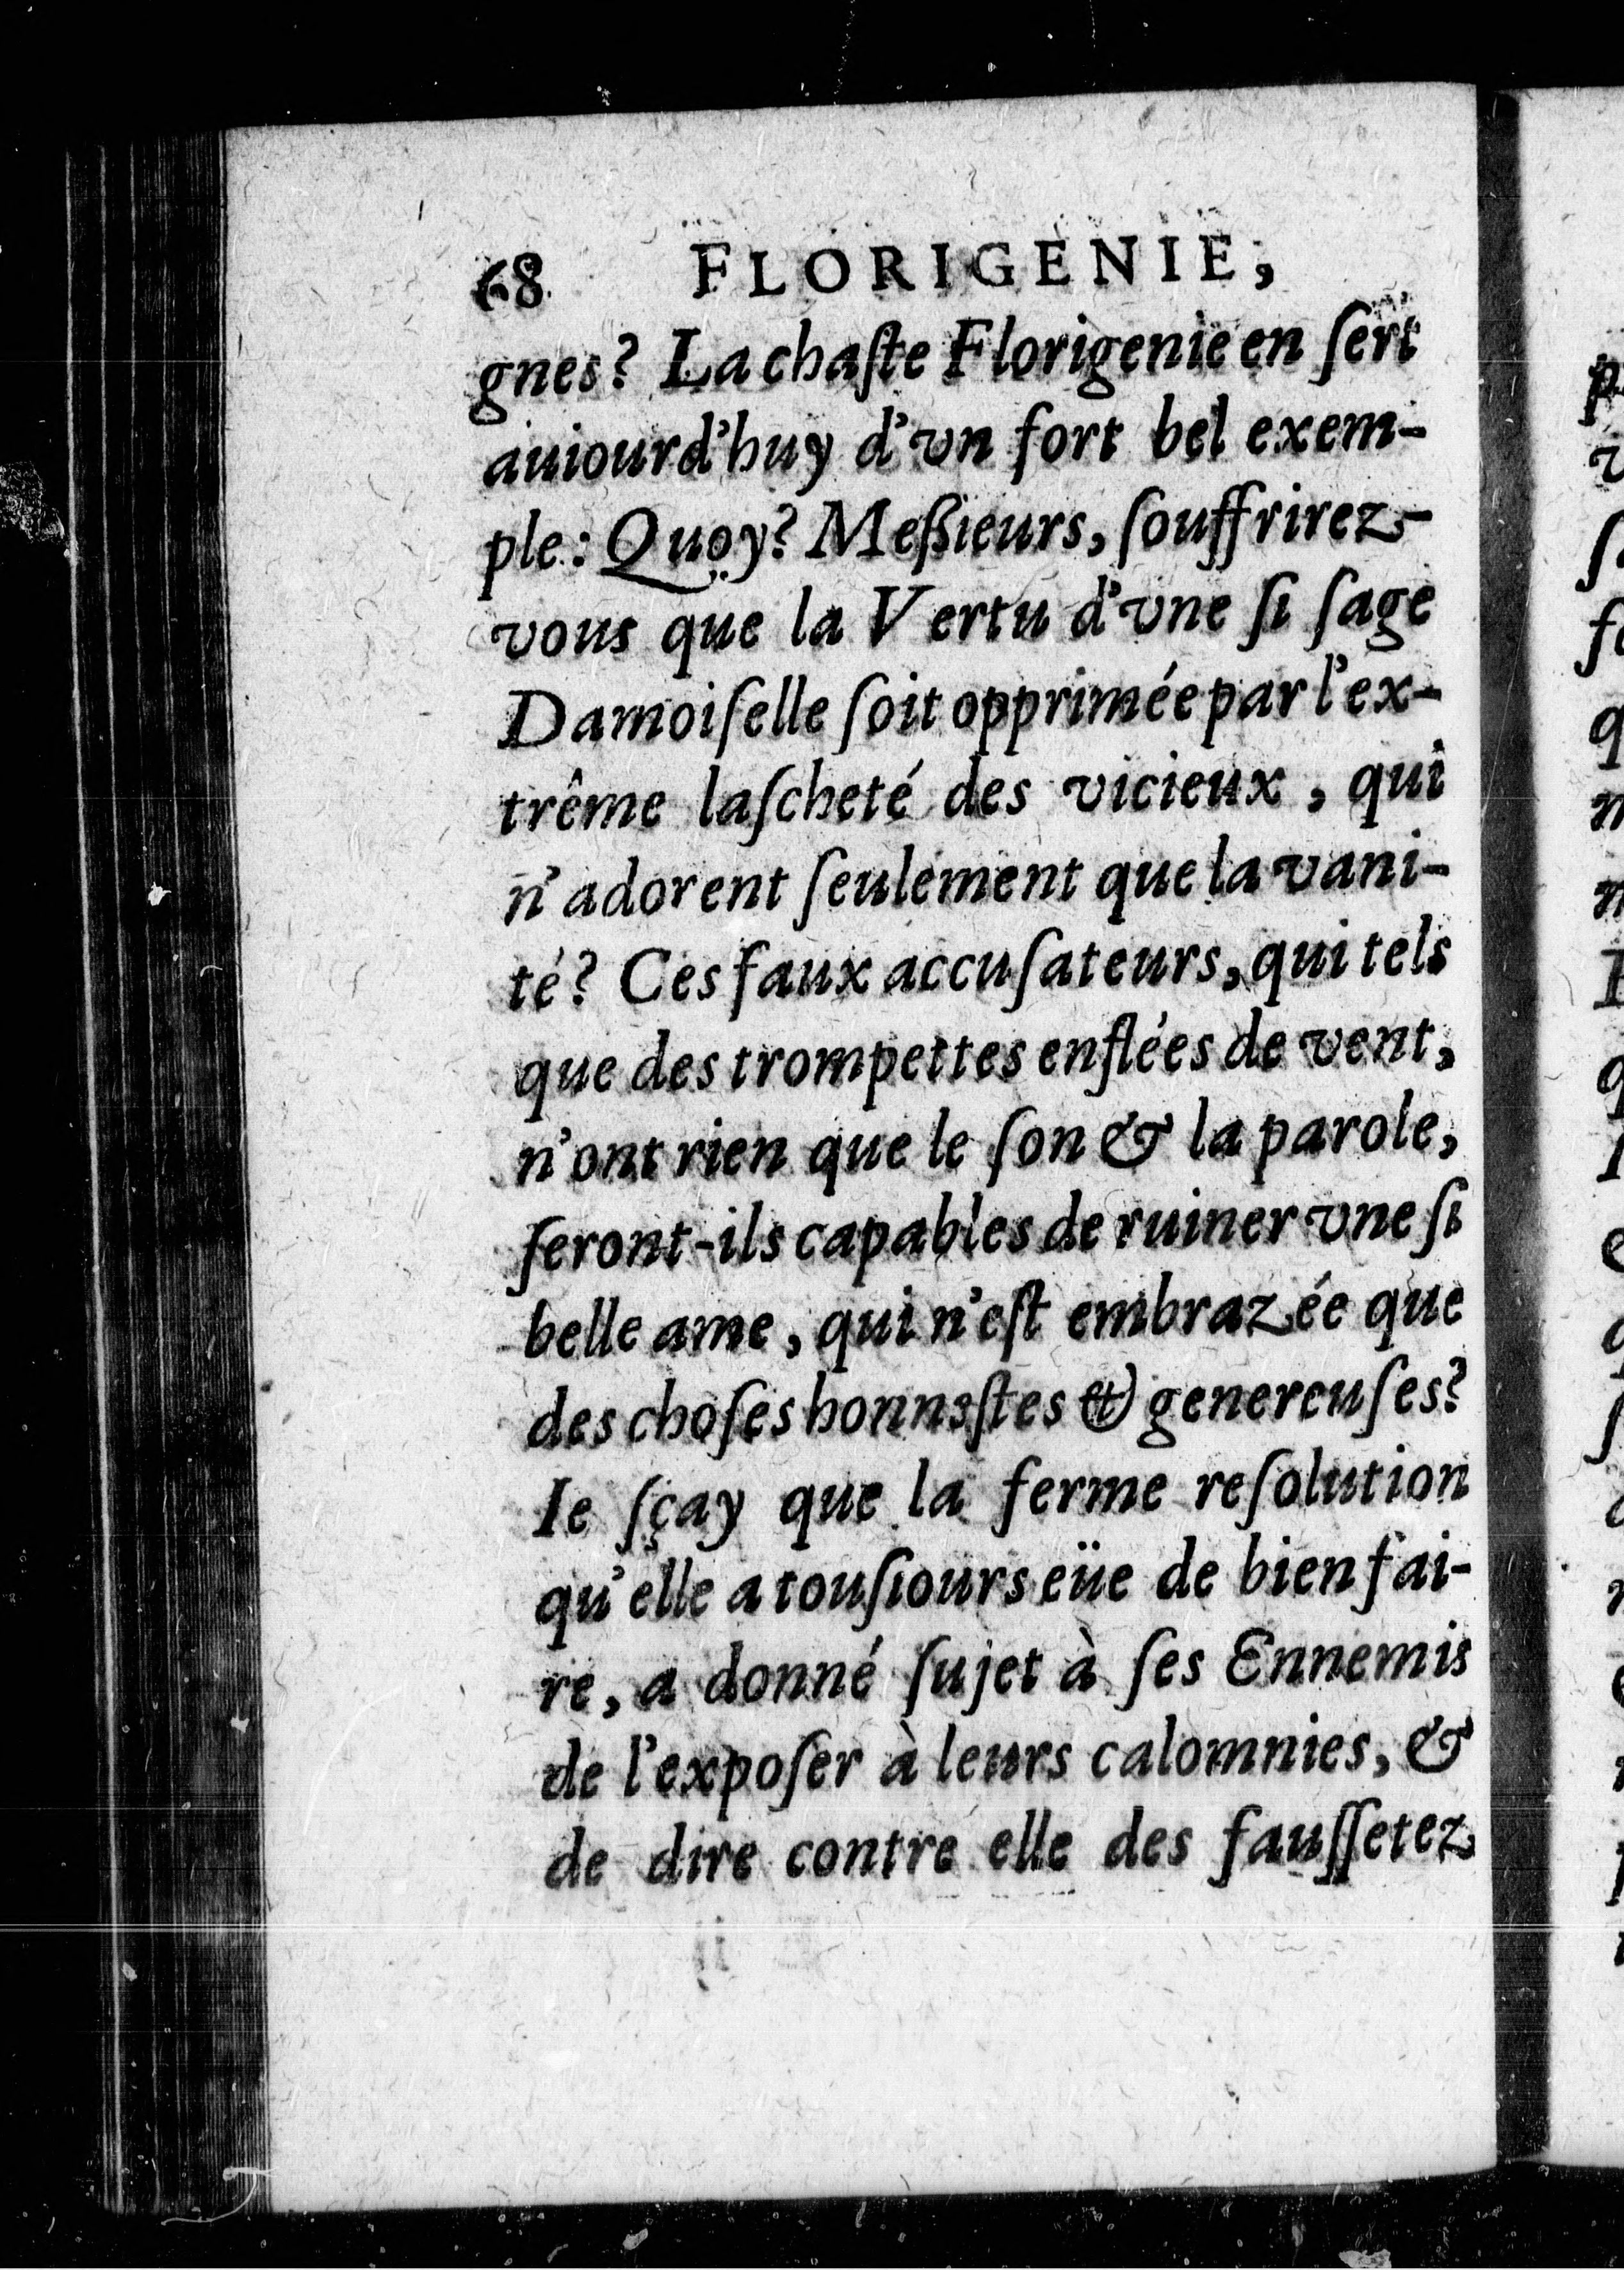 68 FLORIGENIE,
gnes? La chaſte Florigenie en ſert
auiourd'huy d'vn fort bel exem-
ple: Quoy? Meßieurs, ſouffrirez-
vous que la Vertu d'vne ſi ſage
Damoiſelle ſoit opprimée par l'ex-
trême laſcheté des vicieux, qui
n'adorent ſeulement que la vani-
té? Ces faux accuſateurs, qui tels
que des trompettes enflées de vent,
n'ont rien que le ſon & la parole,
ſeront-ils capables de ruiner vne ſi
belle ame, qui n'eſt embrazée que
des choſes honneſtes & genereuſes?
Ie ſçay que la ferme reſolution
qu'elle a touſiours eüe de bien fai-
re, a donné ſujet à ſes Ennemis
de l'expoſer à leurs calomnies, &
de dire contre elle des fauſſetez